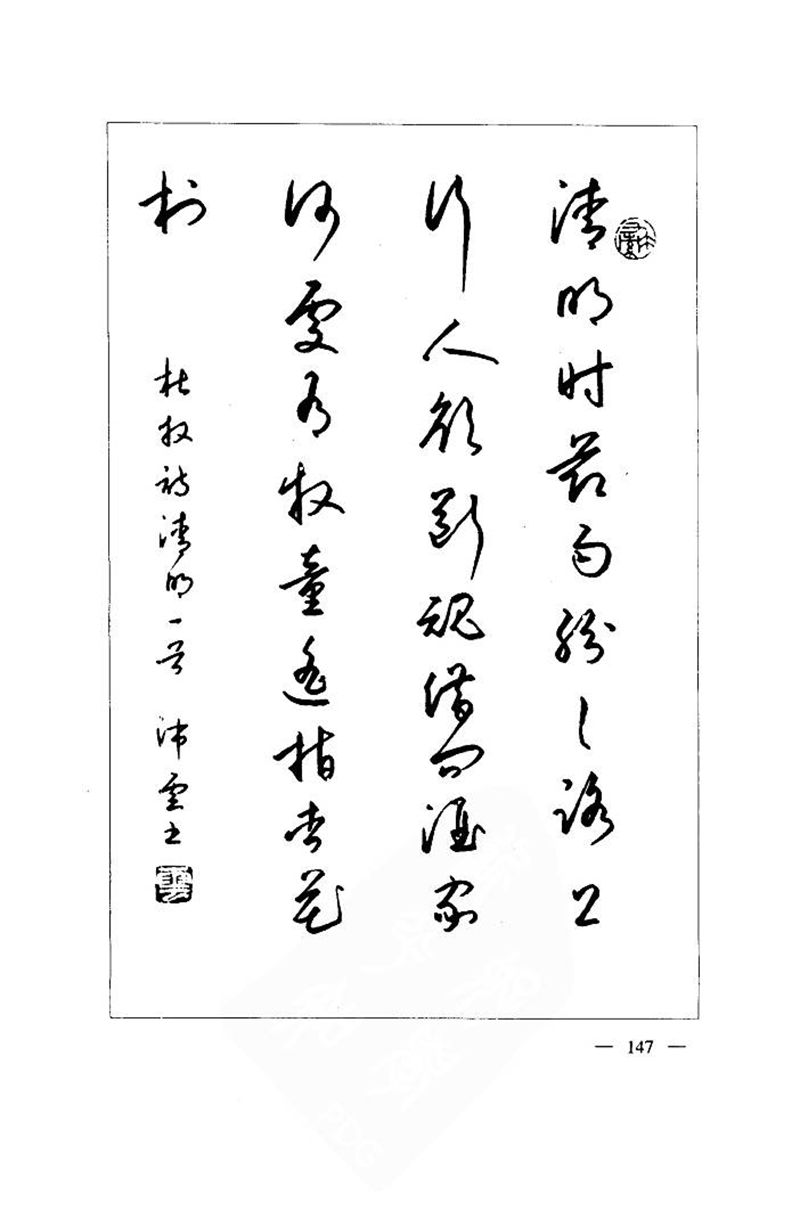 清明时节雨紛々路上
行人欲断魂借问酒家
何処有牧童遥指杏花
村
杜牧诗清明一首 沛雲书
— 147 —
PDG